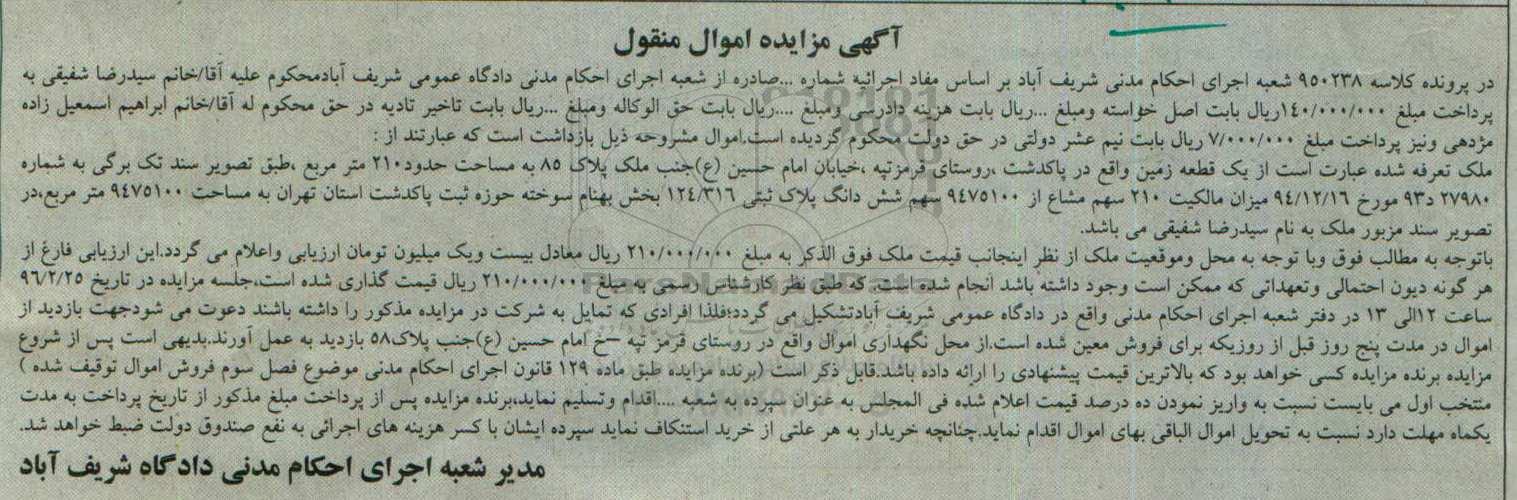 آگهی مزایده اموال منقول
در پرونده کلاسه ۹۵۰۲۳۸ شعبه اجرای احکام مدنی شریف آباد بر اساس مفاد اجرائیه شماره ...صادره از شعبه اجرای احکام مدنی دادگاه عمومی شریف آبادمحکوم علیه آقا/خانم سیدرضا شفیقی به
پرداخت مبلغ ۱۴۰/۰۰۰/۰۰۰ریال بابت اصل خواسته ومبلغ ...ریال بابت هزینه دادرسی ومبلغ ....ریال بابت حق الوکاله ومبلغ ...ریال بابت تاخیر تادیه در حق محکوم له آقا/خانم ابراهیم اسمعیل زاده
مژدهی ونیز پرداخت مبلغ ۷/۰۰۰/۰۰۰ ریال بابت نیم عشر دولتی در حق دولت محکوم گردیده است.اموال مشروحه ذیل بازداشت است که عبارتند از :
ملک تعرفه شده عبارت است از یک قطعه زمین واقع در پاکدشت ،روستای قرمزتپه ،خیابان امام حسین (ع)جنب ملک پلاک ۸۵ به مساحت حدود۲۱۰ متر مربع ،طبق تصویر سند تک برگی به شماره
۲۷۹۸۰ د۹۳ مورخ ۹۴/۱۲/۱۶ میزان مالکیت ۲۱۰ سهم مشاع از ۹۴۷۵۱۰۰ سهم شش دانگ پلاک ثبتی ۱۲۴/۳۱۶ بخش بهنام سوخته حوزه ثبت پاکدشت استان تهران به مساحت ۹۴۷۵۱۰۰ متر مربع،در
تصویر سند مزبور ملک به نام سیدرضا شفیقی می باشد.
باتوجه به مطالب فوق وبا توجه به محل وموقعیت ملک از نظر اینجانب قیمت ملک فوق الذکر به مبلغ ۲۱۰/۰۰۰/۰۰۰ ریال معادل بیست ویک میلیون تومان ارزیابی واعلام می گردد.این ارزیابی فارغ از
هر گونه دیون احتمالی وتعهداتی که ممکن است وجود داشته باشد انجام شده است. که طبق نظر کارشناس رسمی به مبلغ ۲۱۰/۰۰۰/۰۰۰ ریال قیمت گذاری شده است،جلسه مزایده در تاریخ ۹۶/۲/۲۵
ساعت ۱۲الی ۱۳ در دفتر شعبه اجرای احکام مدنی واقع در دادگاه عمومی شریف آبادتشکیل می گردد؛فلذا افرادی که تمایل به شرکت در مزایده مذکور را داشته باشند دعوت می شودجهت بازدید از
اموال در مدت پنج روز قبل از روزیکه برای فروش معین شده است.از محل نگهداری اموال واقع در روستای قرمز تپه –خ امام حسین (ع)جنب پلاک۵۸ بازدید به عمل آورند.بدیهی است پس از شروع
مزایده برنده مزایده کسی خواهد بود که بالاترین قیمت پیشنهادی را ارائه داده باشد.قابل ذکر است (برنده مزایده طبق ماده ۱۲۹ قانون اجرای احکام مدنی موضوع فصل سوم فروش اموال توقیف شده )
منتخب اول می بایست نسبت به واریز نمودن ده درصد قیمت اعلام شده فی المجلس به عنوان سپرده به شعبه ....اقدام وتسلیم نماید،برنده مزایده پس از پرداخت مبلغ مذکور از تاریخ پرداخت به مدت
یکماه مهلت دارد نسبت به تحویل اموال الباقی بهای اموال اقدام نماید.چنانچه خریدار به هر علتی از خرید استنکاف نماید سپرده ایشان با کسر هزینه های اجرائی به نفع صندوق دولت ضبط خواهد شد.
مدیر شعبه اجرای احکام مدنی دادگاه شریف آباد